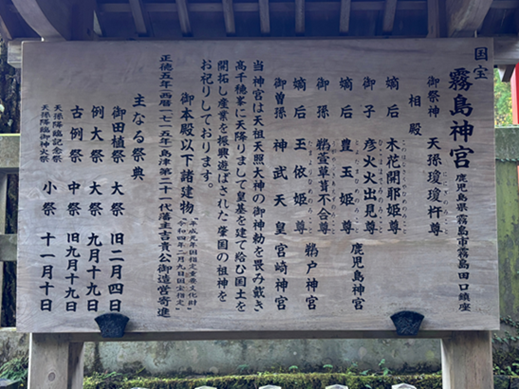 国宝
霧島神宮 鹿児島県霧島市霧島田口鎮座
御祭神 天孫瓊瓊杵尊
相殿
嫡后 木花開耶姫尊
御子 彦火火出見尊 鹿児島神宮
嫡后 豊玉姫尊
御孫 鸕鶿草葺不合尊 鵜戸神宮
嫡后 玉依姫尊
御曽孫 神武天皇 宮崎神宮
当神宮は天祖天照大神の御神勅を畏み戴き
高千穂峯に天降りまして皇基を建て給ひ国土を
開拓し産業を振興遊ばされた肇国の祖神を
お祀りしております。
御本殿以下諸建物
平成元年国指定重要文化財
令和四年二月九日国宝指定
正徳五年西暦一七一五年島津第二十一代藩主吉貴公御造営寄進
主なる祭典
御田植祭 大祭 旧二月四日
例大祭 大祭 九月十九日
古例祭 中祭 旧九月十九日
天孫降臨記念祭
天孫降臨御神火祭 小祭 十一月十日